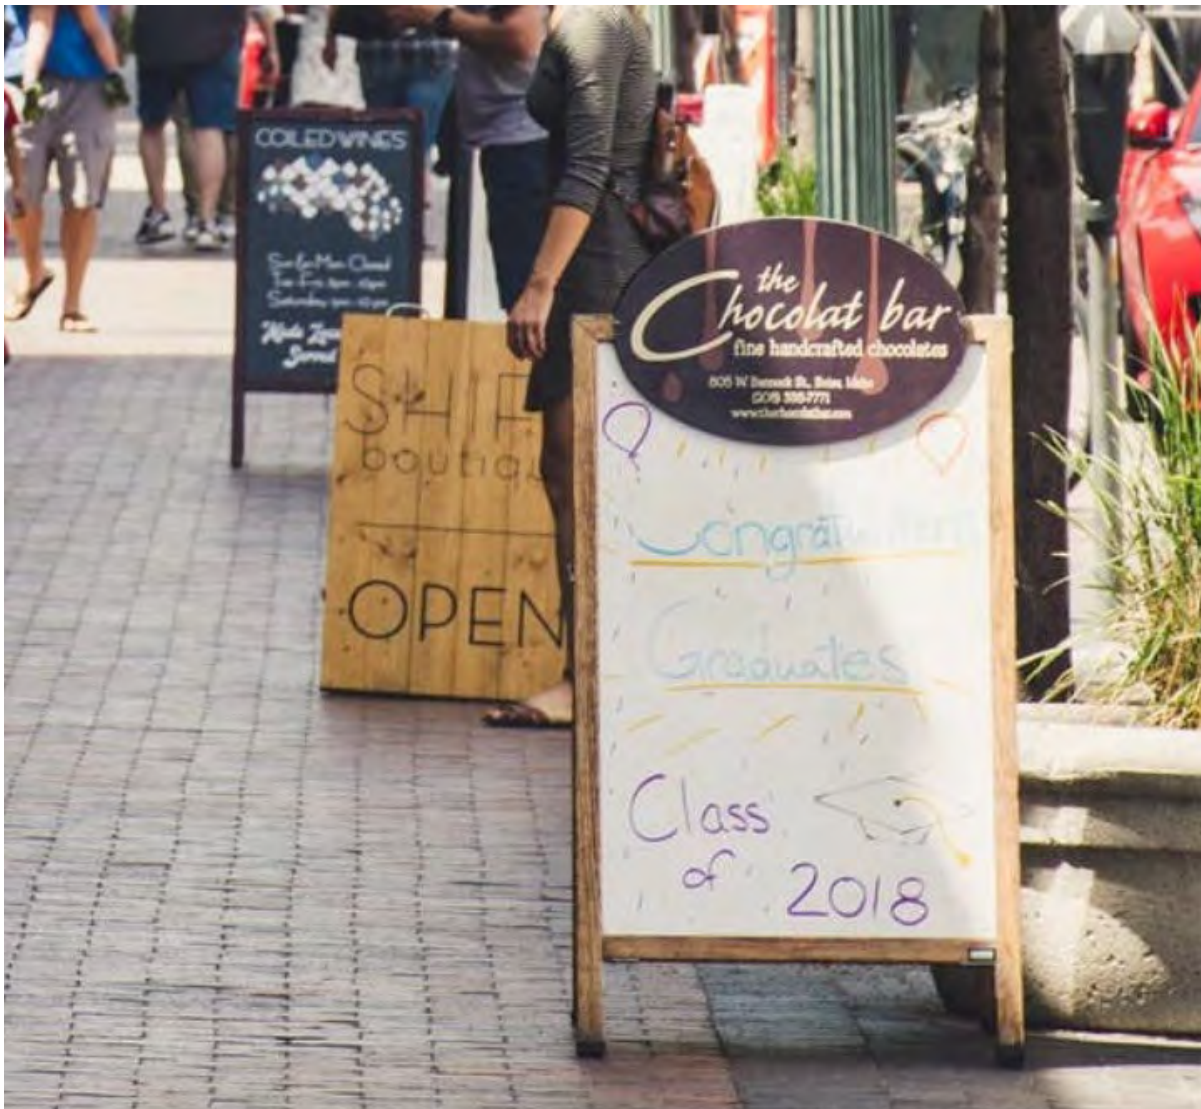 COILED WINES
Sun & Mon Closed
SHIF
boutiqu
OPEN
the
Chocolat bar
fine handcrafted chocolates
805 W Bannock St., Boise, Idaho
(208) 338-7771
www.thechocolatbar.com
Congratulations
Graduates
Class
of
2018